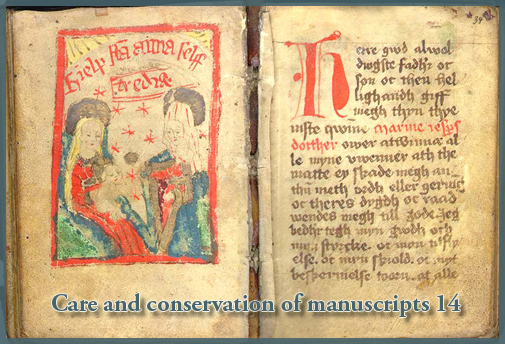 hielp sta anna self
tredie
Here gwd alwol
dwgste fadhr oc
son oc then hel
lighandh giff
megh thyn thye
niste qwinne marine iesps
dotther over atwinnæ al
le myne vwenner ath the
matte ey skade megh an
meth vedh eller
oc theres dygdh oc raad
wendes megh till gode Jeg
bedhr tegh myn gwdh och
styrcke. oc mon tilfly
else. oc myn skiold. oc myt
beskermelse toorn. at alle
Care and conservation of manuscripts 14